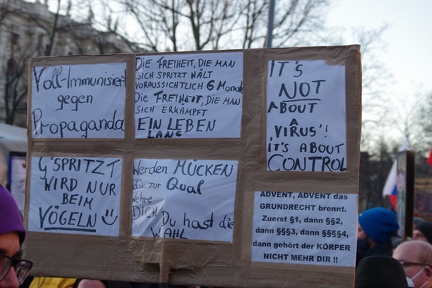 Voll-Immunisiert
gegen
Propaganda
DIE FREIHEIT, DIE MAN
SICH SPRITZT HÄLT
VORAUSSICHTLICH 6 Monate
DIE FREIHEIT, DIE MAN
SICH ERKÄMPFT
EIN LEBEN
LANG
IT'S
NOT
ABOUT
A
VIRUS'!
IT'S ABOUT
CONTROL
G'SPRITZT
WIRD NUR
BEIM
VÖGELN
Werden MÜCKEN
dir zur Qual
DICH Du hast die
WAHL
ADVENT, ADVENT das
GRUNDRECHT brennt.
Zuerst §1, dann §§2,
dann §§§3, dann §§§§4,
dann gehört der KÖRPER
NICHT MEHR DIR !!